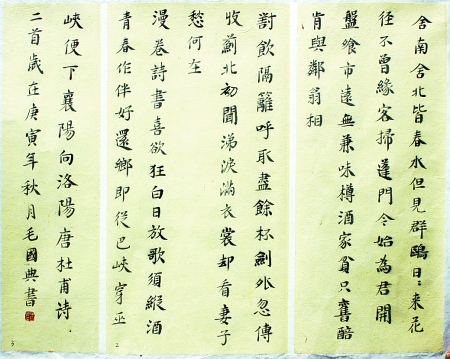 舍南舍北皆春水但見群鷗日〻来花
徑不曾緣客掃蓬門今始為君開
盤飧市遠無兼味樽酒家貧只舊醅
肯與鄰翁相
對飲隔籬呼取盡餘杯劍外忽傳
收薊北初聞涕淚滿衣裳却看妻子
愁何在
漫卷詩書喜欲狂白日放歌須縱酒
青春作伴好還鄉即從巴峽穿巫
2
峽便下襄陽向洛陽唐杜甫詩
二首歲在庚寅年秋月毛國典書
3